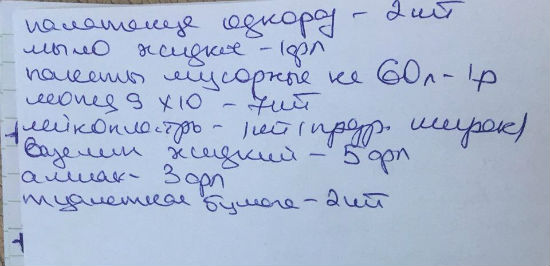 полотенце однораз - 2 шт
мыло жидкое - 1 фл
пакеты мусорные на 60л - 1р
9 х 10 - 7 шт
лейкопластрь - 1 шт (прозр. широк)
вазелин жидкий - 5 фл
аммиак - 3 фл
туалетная бумага - 2 шт